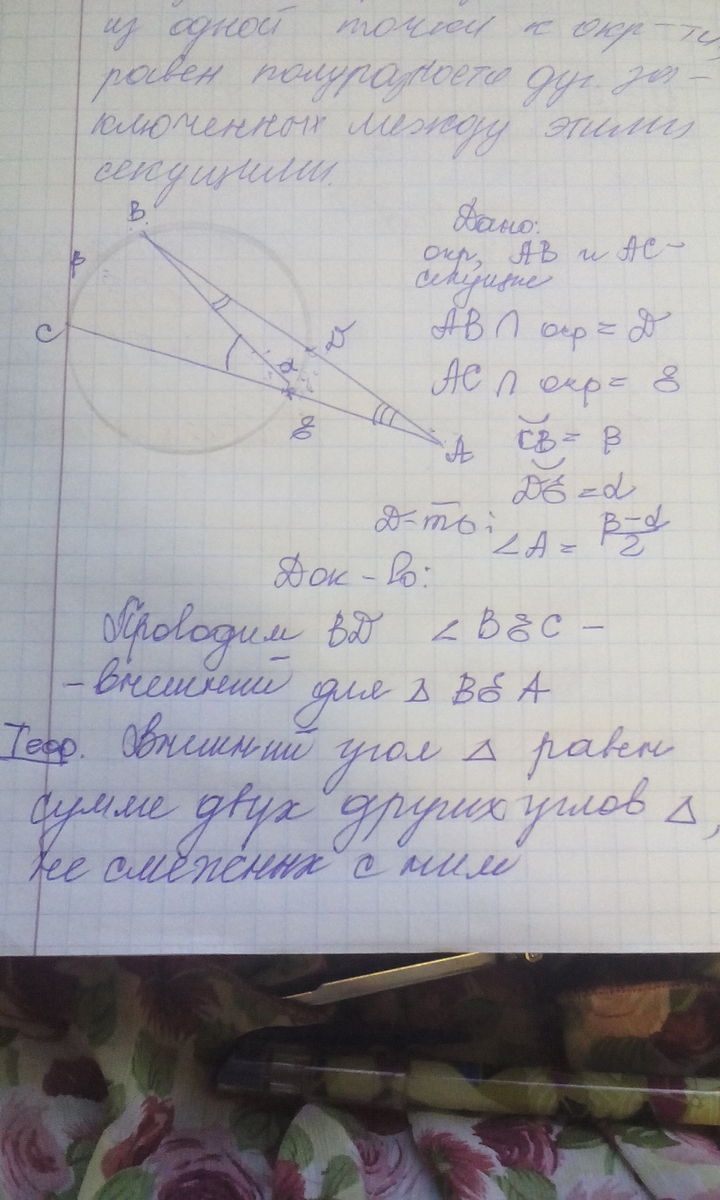 из одной точки к окр-ти,
равен полуразности дуг, за-
ключенных между этими
секущими.
B
β
C
D
α
E
A
Дано:
окр, AB и AC -
секущие
AB ∩ окр = D
AC ∩ окр = E
CB = β
DE = α
Д-ть:
∠A = β-α/2
Док-во:
Проводим BD ∠BEC -
- внешний для △ BEA
Теор. Внешний угол △ равен
сумме двух других углов △,
не смежных с ним